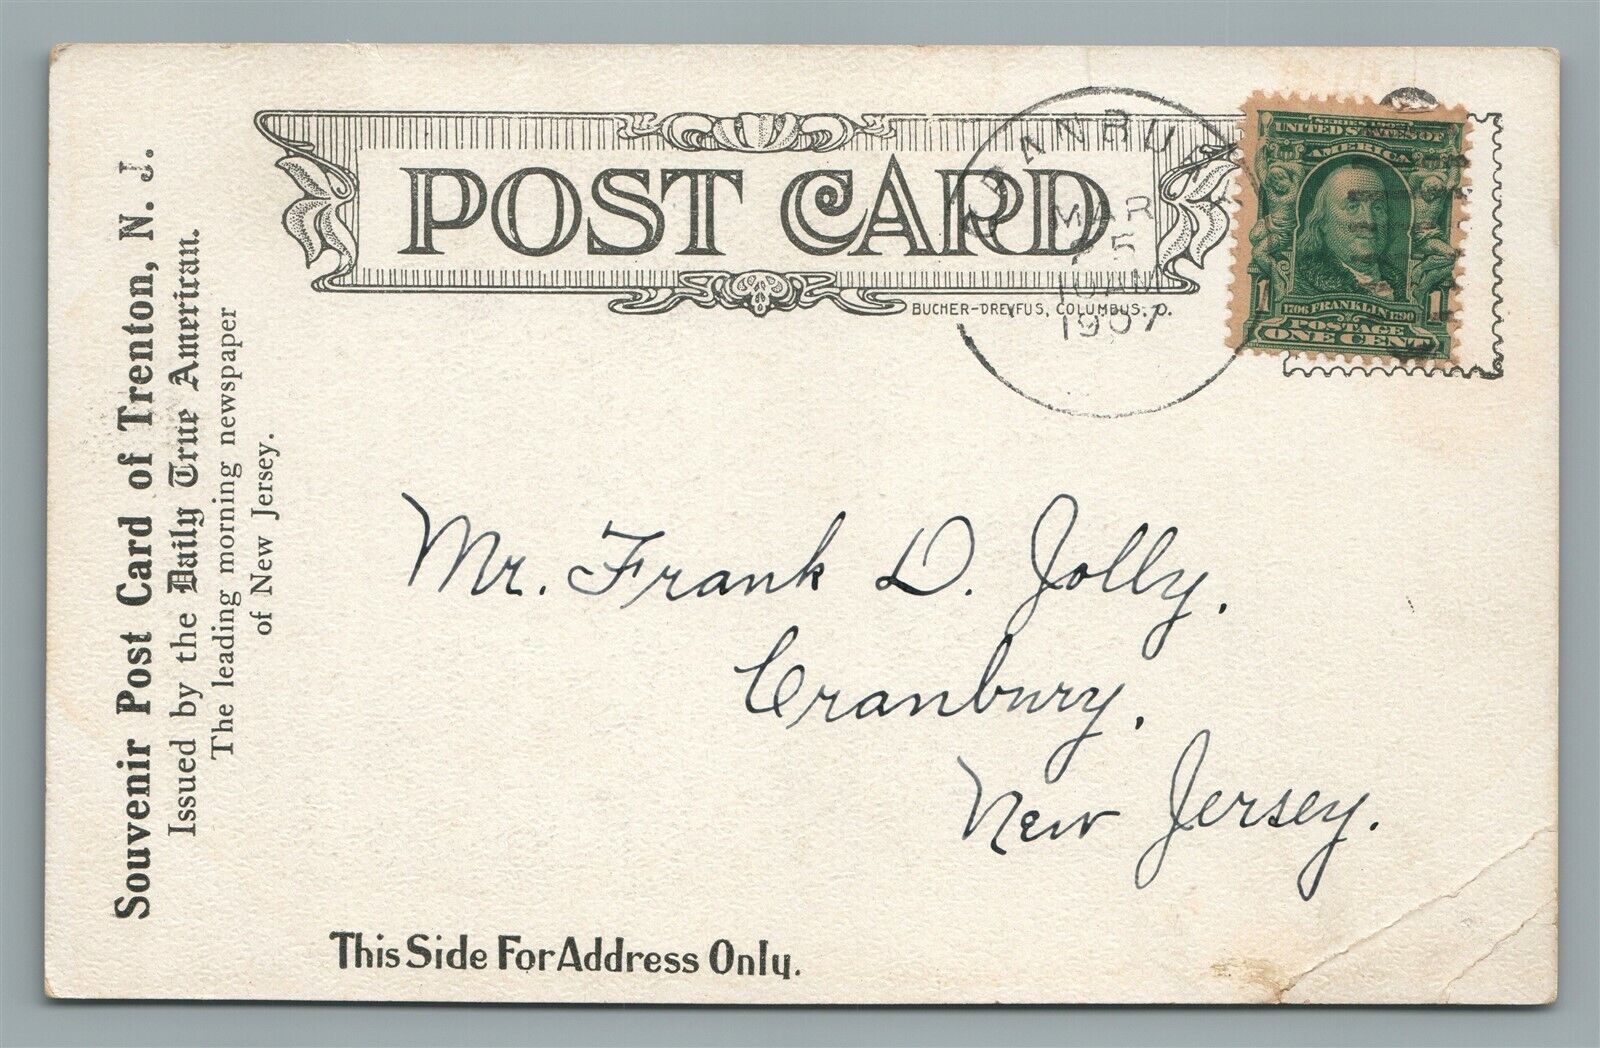 Souvenir Post Card of Trenton, N. J.
Issued by the Daily True American.
The leading morning newspaper
of New Jersey.
POST CARD
BUCHER-DREYFUS, COLUMBUS, O.
CRANBURY
MAR
5
10 AM
1907
SERIES 1902
UNITED STATES OF
AMERICA
1706 FRANKLIN 1790
1 1
POSTAGE
ONE CENT
Mr. Frank D. Jolly.
Cranbury.
New Jersey.
This Side For Address Only.